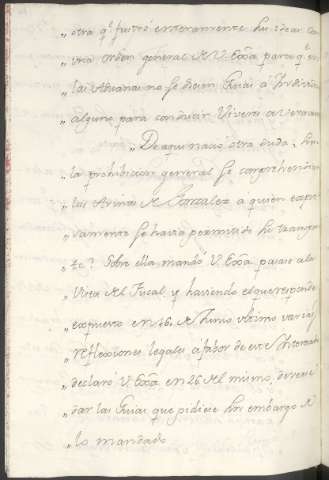 „ otra qe frustró enteramente su idear Con
„ una orden general de V. Exâ para qe en
„ las Aduanas no se diesen Guias á Yndividuo
„ alguno para conducir Viveres a Veracruz
„ De aqui nació otra duda: Si en
„ la prohibicion general se comprehendian
„ las Arinas de Gonzalez a quien expre
„ vamente se havia permitido su transpor
„ te? Sobre ella mandó V. Exâ pasase a la
„ Vista del Fiscal, y haviendo el que responde
„ expuesto en 16. de Junio ultimo varias
„ reflexiones legales, á fabor de este Interesado
„ declaró V. Exâ en 26 del mismo, deverse
„ dar las Guias que pidiese sin embargo de
„ lo mandado